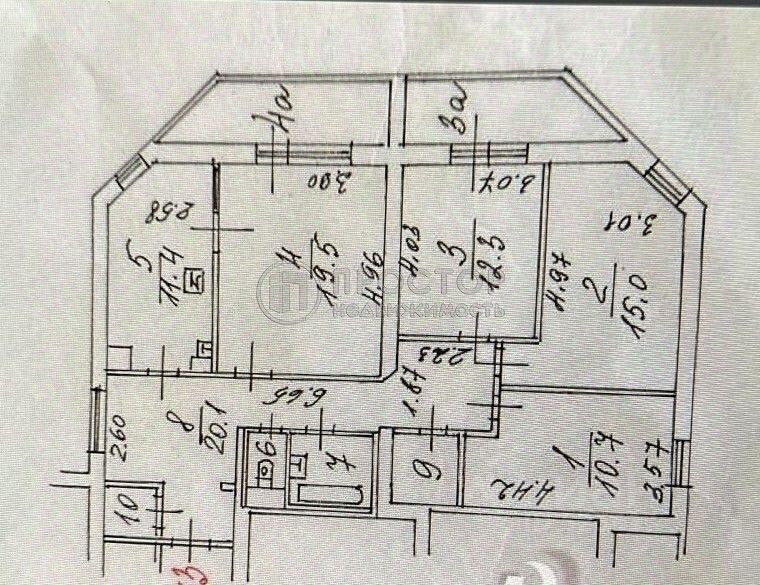 4а
3а
2.58
3.90
3.07
3.01
5
11.4
4
19.5
4.96
4.03
3
12.3
4.97
2
15.0
ПРОСТОР
НЕДВИЖИМОСТЬ
2.23
1.87
6.65
2.60
8
20.1
6
7
9
4.42
1
10.7
3.57
10